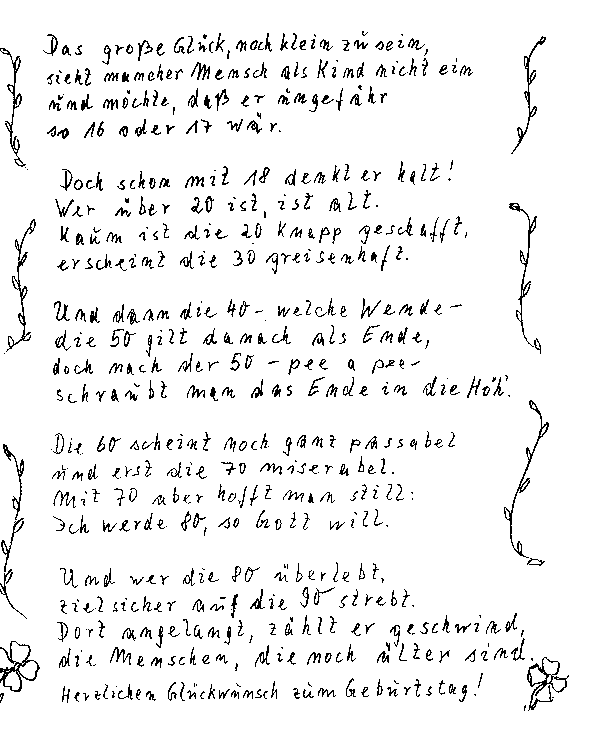 Das große Glück, noch klein zu sein,
sieht mancher Mensch als Kind nicht ein
und möchte, daß er ungefähr
so 16 oder 17 wär.
Doch schon mit 18 denkt er halt!
Wer über 20 ist, ist alt.
Kaum ist die 20 knapp geschafft,
erscheint die 30 greisenhaft.
Und dann die 40 - welche Wende -
die 50 gilt danach als Ende,
doch nach der 50 - pee a pee -
schraubt man das Ende in die Höh'.
Die 60 scheint noch ganz passabel
und erst die 70 miserabel.
Mit 70 aber hofft man still:
Ich werde 80, so Gott will.
Und wer die 80 überlebt,
zielsicher auf die 90 strebt.
Dort angelangt, zählt er geschwind,
die Menschen, die noch älter sind.
Herzlichen Glückwunsch zum Geburtstag!